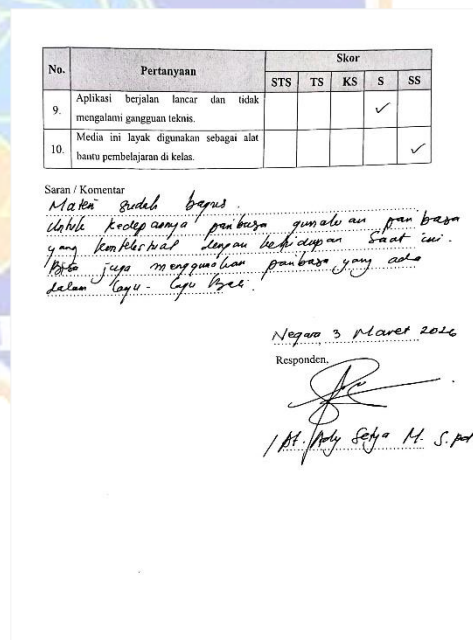 No. Pertanyaan Skor
STS TS KS S SS
9. Aplikasi berjalan lancar dan tidak
mengalami gangguan teknis. ✓
10. Media ini layak digunakan sebagai alat
bantu pembelajaran di kelas. ✓
Saran / Komentar
Materi sudah bagus.
Untuk kedepannya paribasa gunakan paribasa
yang kontekstual dengan kehidupan saat ini.
Bisa juga menggunakan paribasa yang ada
dalam lagu - lagu Bali.
Negara 3 Maret 2026
Responden,
Setya M. S.Pd